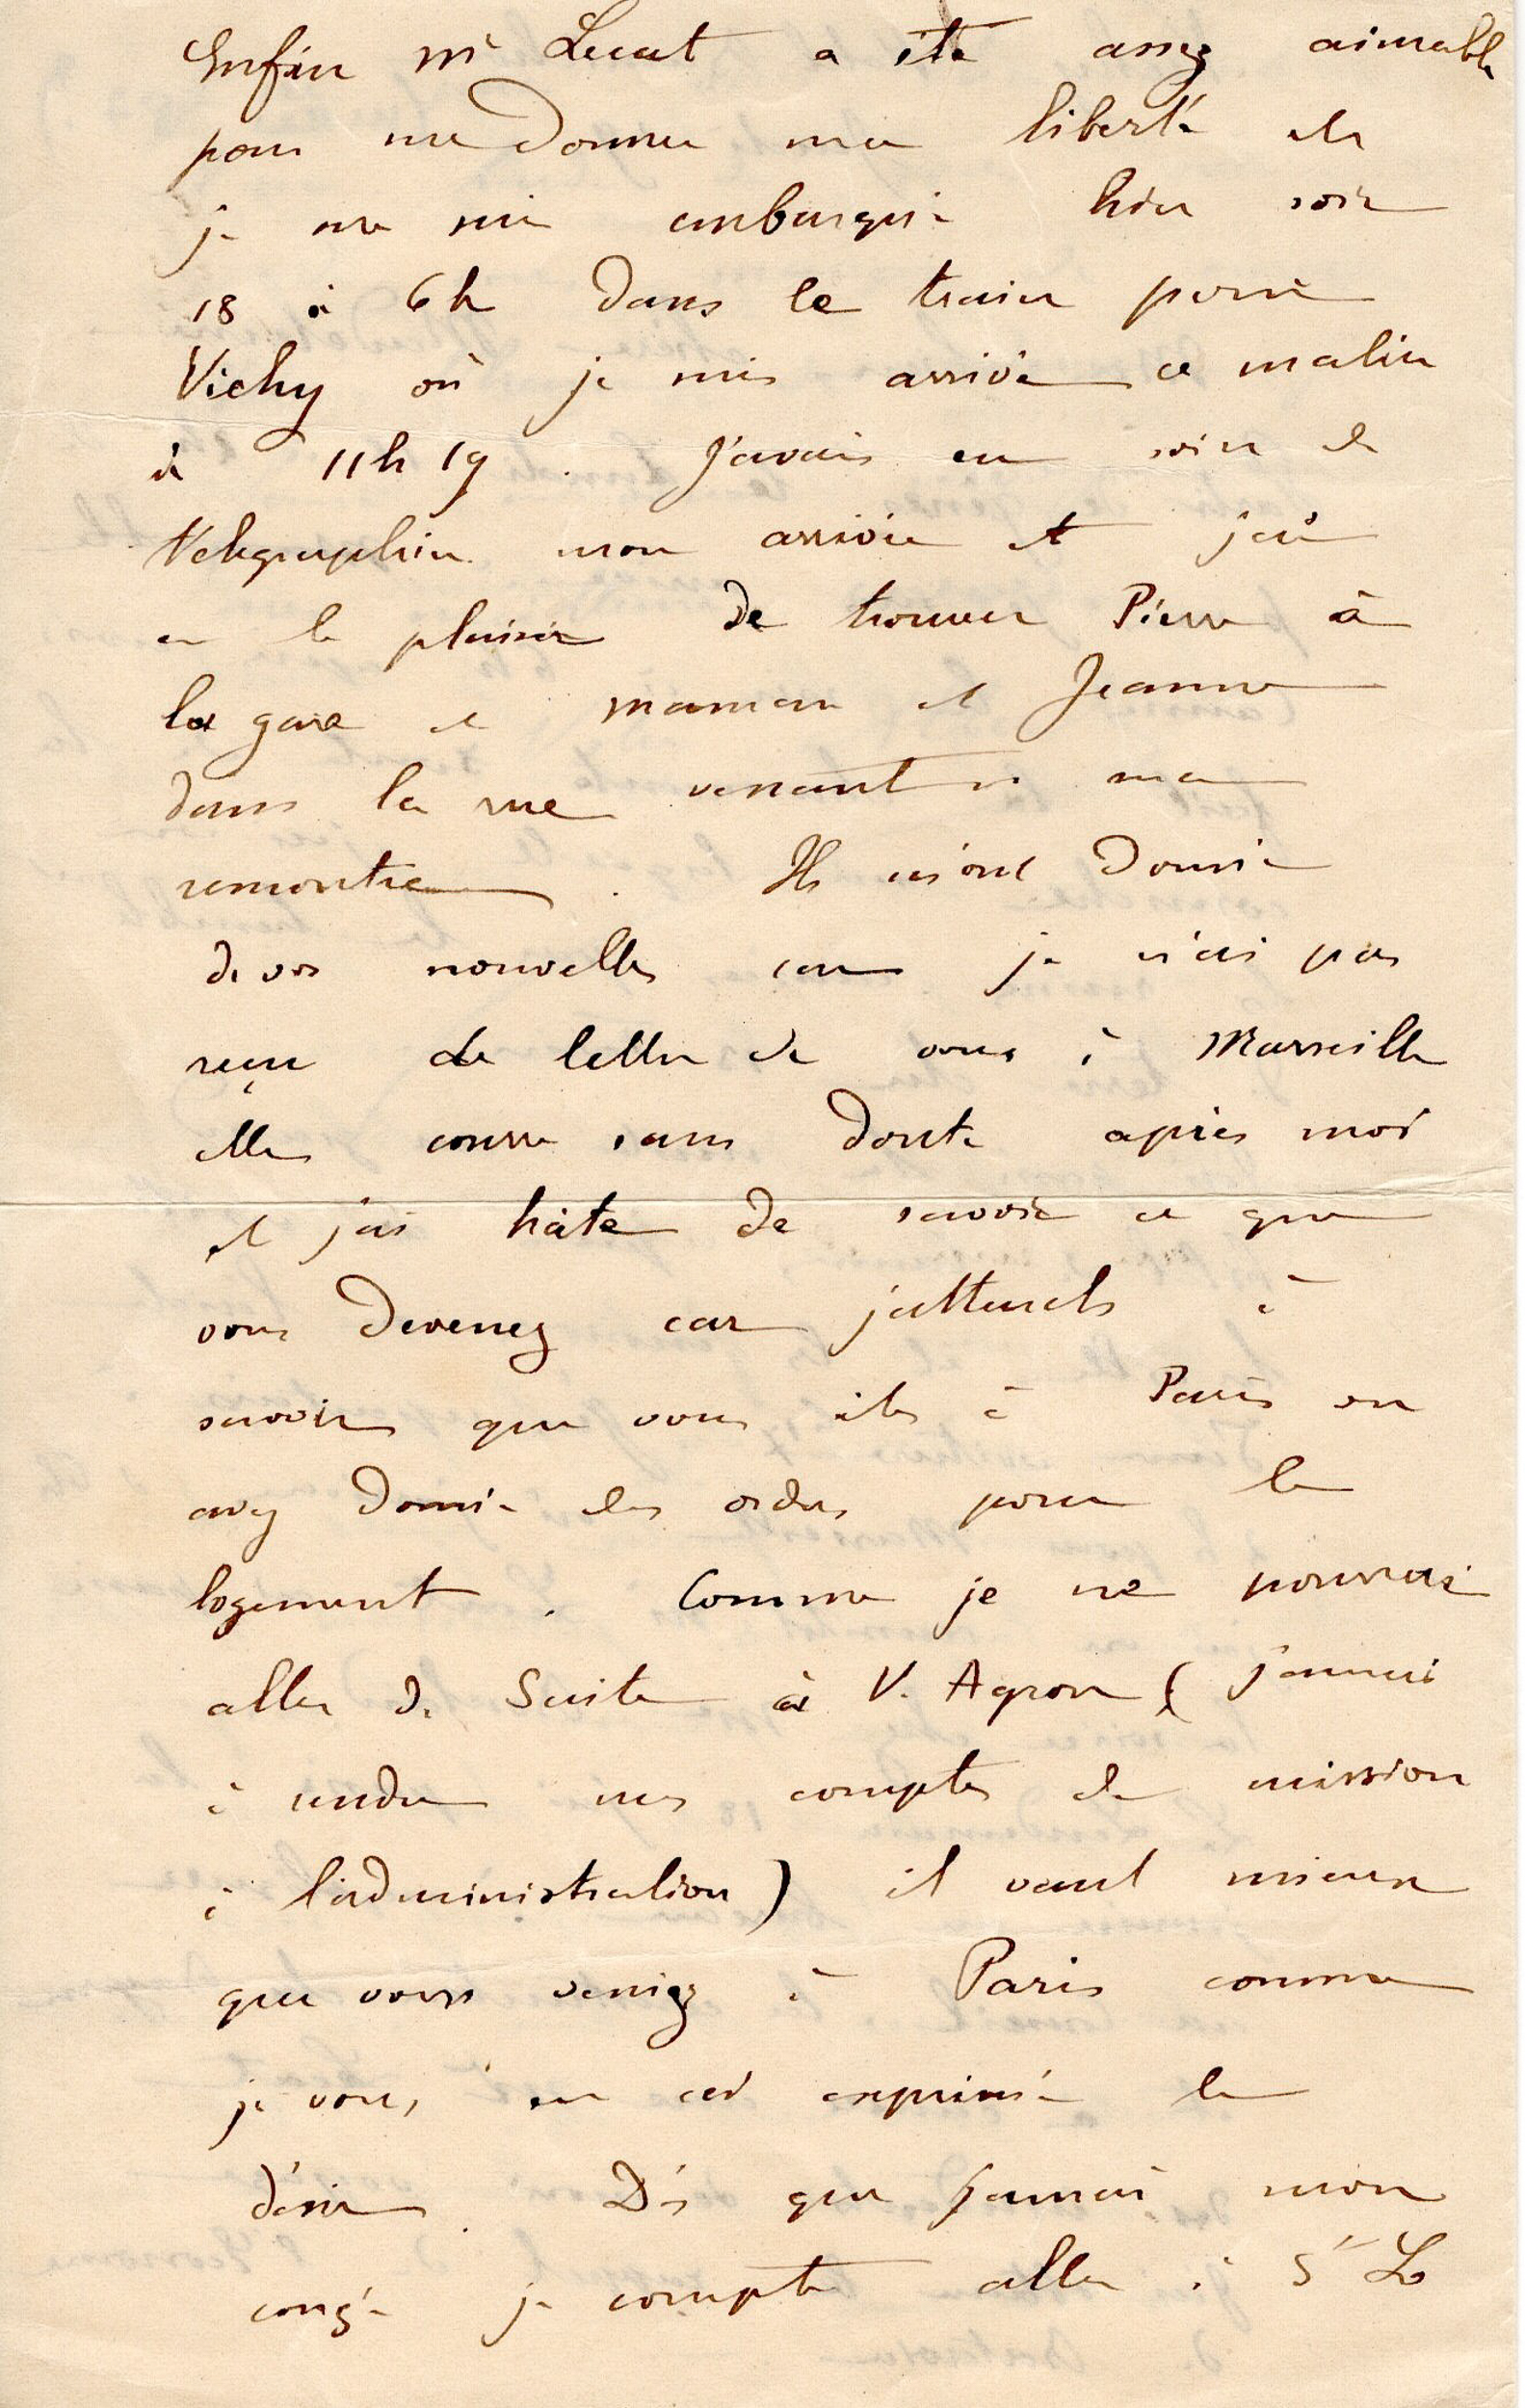 Enfin Mr Lecat a été assez aimable
pour me donner ma liberté et
je me suis embarqué hier soir
18 à 6h dans le train pour
Vichy où je suis arrivé ce matin
à 11h19. J'avais eu soin de
télégraphier mon arrivée et j'ai
eu le plaisir de trouver Pierre à
la gare et maman et Jeanne
dans la rue venant à ma
rencontre. Ils m'ont donné
de vos nouvelles car je n'ai pas
reçu de lettre de vous à Marseille
elles courre sans doute après moi
et j'ai hâte de savoir ce que
vous devenez car j'attends à
savoir que vous êtes à Paris ou
avez donné des ordres pour le
logement. Comme je ne pourrai
aller de suite à V. Agron (j'aurai
à rendre mes comptes de mission
à l'administration) il vaut mieux
que vous veniez à Paris comme
je vous en ai exprimé le
désir. Dès que j'aurai mon
congé je compte aller à St Lo